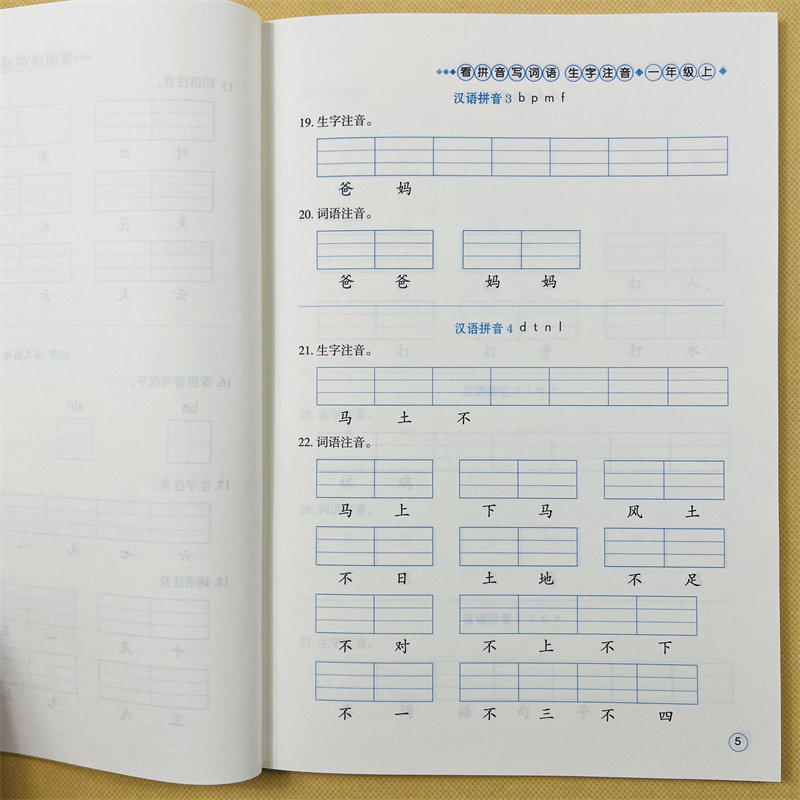 看拼音写词语 生字注音 一年级上
汉语拼音 3 b p m f
19. 生字注音。
爸 妈
20. 词语注音。
爸 爸 妈 妈
汉语拼音 4 d t n l
21. 生字注音。
马 土 不
22. 词语注音。
马 上 下 马 风 土
不 日 土 地 不 足
不 对 不 上 不 下
不 一 不 三 不 四
5